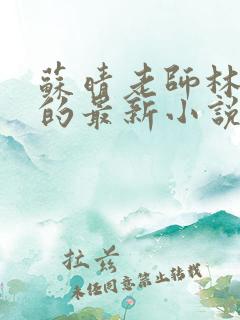 蘇晴老師林
的最新小說
拉茲
未经同意禁止转载